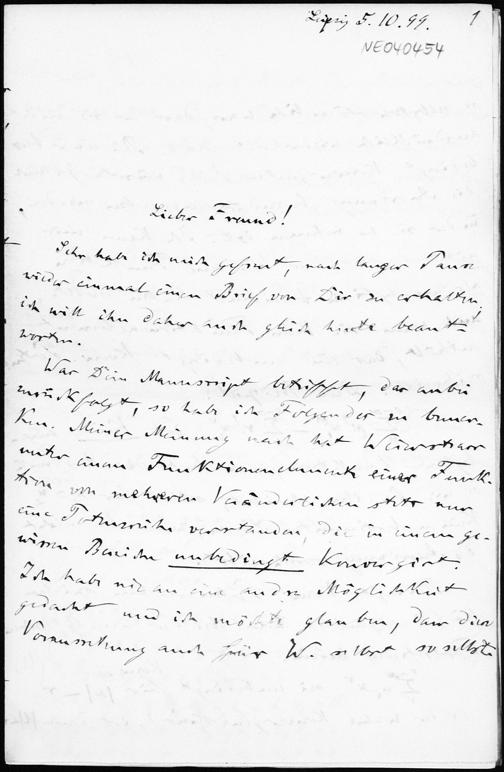 Leipzig 5.10.99.
1
NE040454
Lieber Freund!
Sehr habe ich mich gefreut, nach langer Pause
wieder einmal einen Brief von Dir zu erhalten,
ich will ihn daher auch gleich heute beant-
worten.
Was Dein Manuscript betrifft, das anbei
zurückfolgt, so habe ich Folgendes zu bemer-
ken. Meiner Meinung nach hat Weierstrass
unter einem Funktionenelemente einer Funk-
tion von mehreren Veränderlichen stets nur
eine Potenzreihe verstanden, die in einem ge-
wissen Bereiche unbedingt konvergirt.
Ich habe nie an eine andre Möglichkeit
gedacht und ich möchte glauben, dass diese
Voraussetzung auch für W. selbst so selbst